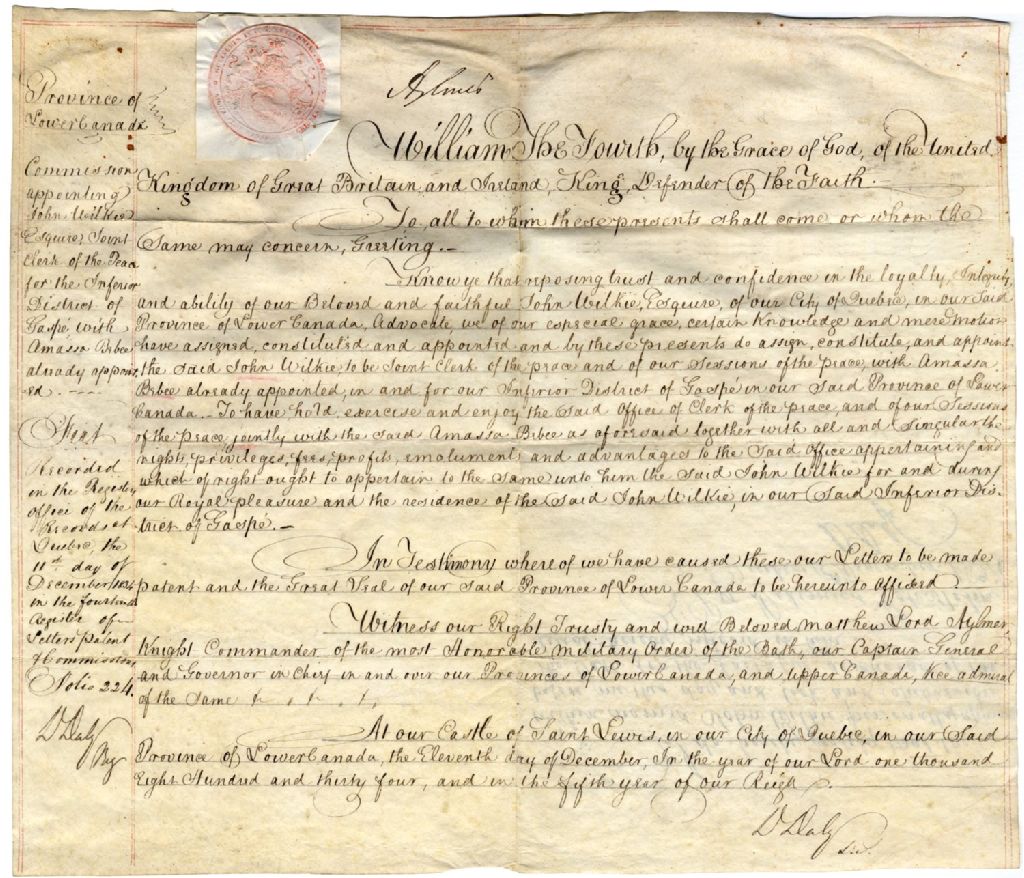 Aylmer
Province of
Lower Canada
Commission
appointing
John Wilkie
Esquire, Joint
Clerk of the Peace
for the Inferior
District of
Gaspé with
Amassa Bebee
already appoint-
ed.
Fiat
Recorded
in the Registry
office of the
Records at
Quebec, the
11th day of
December 1834
in the fourteenth
Register of
Letters patent
& Commissions
Folio 224.
D Daly
Reg
William The Fourth, by the Grace of God, of the United
Kingdom of Great Britain and Ireland, King, Defender of the Faith.-
To all to whom these presents shall come or whom the
Same may concern, Greeting.-
Know ye that reposing trust and confidence in the loyalty, Integrity,
and ability of our Beloved and faithful John Wilkie, Esquire, of our City of Quebec, in our Said
Province of Lower Canada, Advocate, we of our especial grace, certain Knowledge and mere motion
have assigned, constituted and appointed and by these presents do assign, constitute, and appoint
the said John Wilkie, to be Joint Clerk of the peace and of our Sessions of the peace, with Amassa
Bebee already appointed, in and for our Inferior District of Gaspé in our Said Province of Lower
Canada.- To have hold, exercise and enjoy the Said Office of Clerk of the peace, and of our Sessions
of the peace, jointly with the said Amassa Bebee as aforesaid together with all and Singular the
rights, privileges, fees, profits, emoluments and advantages to the Said Office appertaining and
which of right ought to appertain to the Same unto him the Said John Wilkie for and during
our Royal pleasure and the residence of the Said John Wilkie, in our Said Inferior Dis-
trict of Gaspé.-
In Testimony whereof we have caused these our Letters to be made
patent and the Great Seal of our said Province of Lower Canada to be hereunto affixed
Witness our Right Trusty and well Beloved Matthew Lord Aylmer
Knight Commander of the most Honorable Military Order of the Bath, our Captain General
and Governor in Chief in and over our Provinces of Lower Canada, and Upper Canada, Vice admiral
of the Same &. &. &. &.
At our Castle of Saint Lewis, in our City of Quebec, in our Said
Province of Lower Canada, the Eleventh day of December, In the year of our Lord one thousand
Eight Hundred and thirty four, and in the fifth year of our Reign.
D Daly